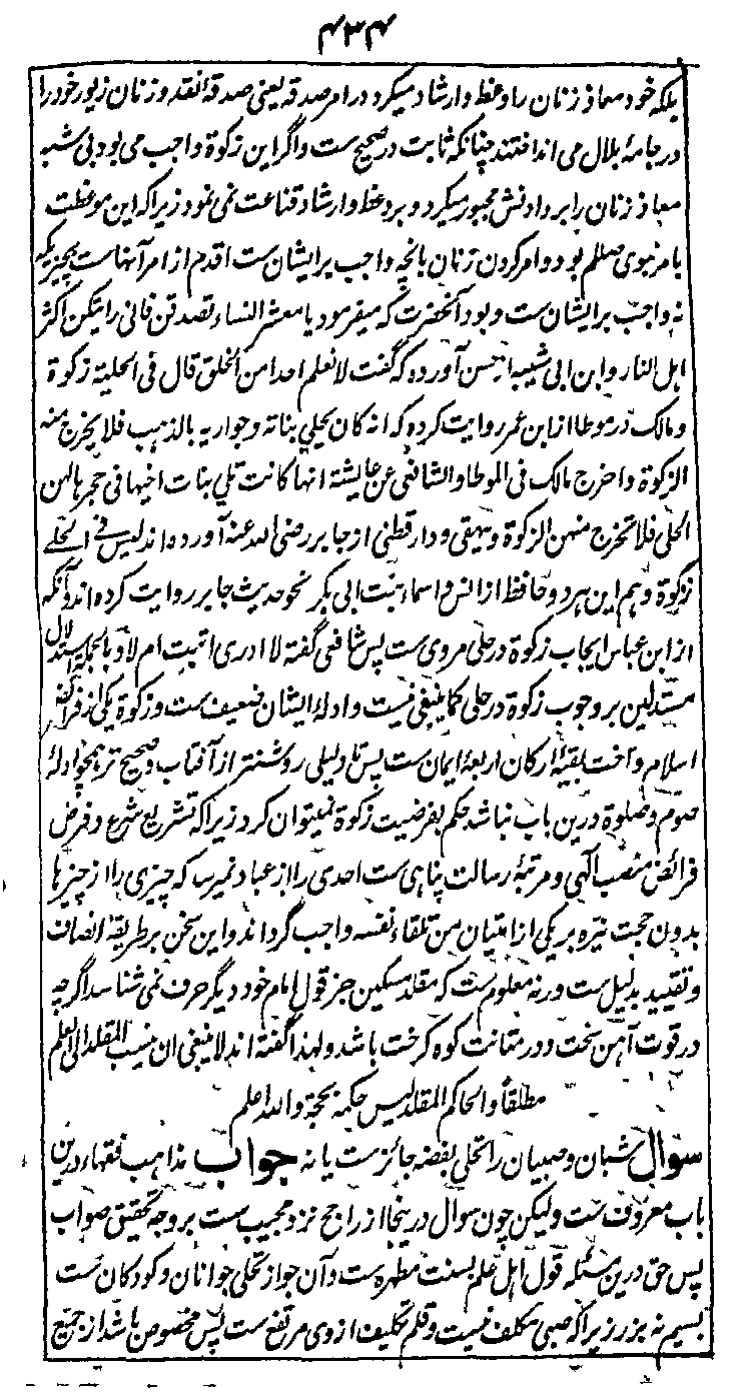 ۴۳۴
بلکه خود معاذ زنان را وعظ وارشاد میکرد در امر صدقه یعنی صدقۀ نقد و زنان زیور خود را
در جامۀ بلال می انداختند چنانکه ثابت در صحیح ست واگر این زکوة واجب می بود بی شبه
معاذ زنان را بر دادنش مجبور میکرد و بر وعظ وارشاد قناعت نمی نمود زیرا که این موعظت
بامر نبوی صلعم بود و امر کردن زنان بانچه واجب بر ایشان ست اقدم از امر آنهاست بچیزیکه
نه واجب بر ایشان ست و بود آنحضرت که میفرمود یا معشر النساء تصدقن فانی رایتکن اکثر
اهل النار و ابن ابی شیبه از حسن آورده که گفت لا نعلم احدا من الخلق قال فی الحلیة زکوة
و مالک در موطا از ابن عمر روایت کرده که انه کان یحلی بناته وجواریه بالذهب فلا یخرج منه
الزکوة و اخرج مالک فی الموطا والشافعی عن عایشة انها کانت تلی بنات اخیها فی حجرها لهن
الحلی فلا تخرج منهن الزکوة و بیهقی و دارقطنی از جابر رضی الله عنه آورده اند لیس فی الحلے
زکوة و هم این هر دو حافظ از انس و اسماء بنت ابی بکر نحو حدیث جابر روایت کرده اند و آنکه
از ابن عباس ایجاب زکوة در حلی مروی ست پس شافعی گفته لا ادری اثبت ام لا و بالجمله استدلال
مستدلین بر وجوب زکوة در حلی کما ینبغی نیست و ادلۀ ایشان ضعیف ست و زکوة یکی از فرائض
اسلام و اخت بقیۀ ارکان اربعۀ ایمان ست پس تا دلیلی روشنتر از آفتاب و صحیح تر همچو ادلۀ
صوم و صلوة درین باب نباشد حکم بفرضیت زکوة نمیتوان کرد زیرا که تشریع شرع و فرض
فرائض منصب الهی و مرتبۀ رسالت پناهی ست احدی را از عباد نمیرسد که چیزی را از چیزها
بدون حجت نیره بر یکی از امتیان من تلقاء نفسه واجب گرداند و این سخن بر طریقۀ انصاف
و تقیید بدلیل ست ورنه معلوم ست که مقلد مسکین جز قول امام خود دیگر حرف نمی شناسد اگرچه
در قوت آهن سخت و در متانت کوه کرخت باشد و لهذا گفته اند لا ینبغی ان ینسب المقلد الی العلم
مطلقا والحاکم المقلد لیس حکمه بحجة والله اعلم
سوال شبان و صبیان را تحلی بفضه جائزست یا نه جواب مذاهب فقهاء درین
باب معروف ست ولیکن چون سوال درینجا از راجح نزد مجیب ست بر وجه تحقیق صواب
پس حق درین مسئله قول اهل علم بسنت مطهره ست و آن جواز تحلی جوانان و کودکان ست
بسیم نه بزر زیرا که صبی مکلف نیست و قلم تکلیف از وی مرتفع ست پس مخصوص باشد از جمیع